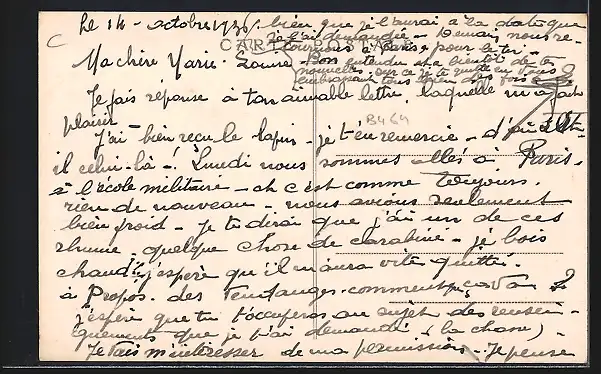 Le 14 - octobre 1936, bien que je l'aurai à la date que
je l'ai demandée - Demain nous re-
CARTE POSTALE
tournons à Paris pour le tri.
Ma chère Marie-Louise
Bon entendu et à bientôt de tes
nouvelles. sur ce je te quitte en vous
embrassant tous bien des fois
Je fais réponse à ton aimable lettre, laquelle m'a fait
plaisir
B464
J'ai bien reçu le lapin - je t'en remercie -
il celui-là -! Lundi nous sommes allés à Paris -
à l'école militaire - et c'est comme toujours.
rien de nouveau - nous avions seulement
bien froid - Je te dirai que j'ai un de ces
rhume quelque chose de carabiné - je bois
chaud, j'espère qu'il m'aura vite quitté.
à Propos. des Vendanges. comment ça va ?
j'espère que tu t'occuperas au sujet des rensei-
gnements que je t'ai demandé (la chasse) -
Je vais m'intéresser de ma permission - Je pense